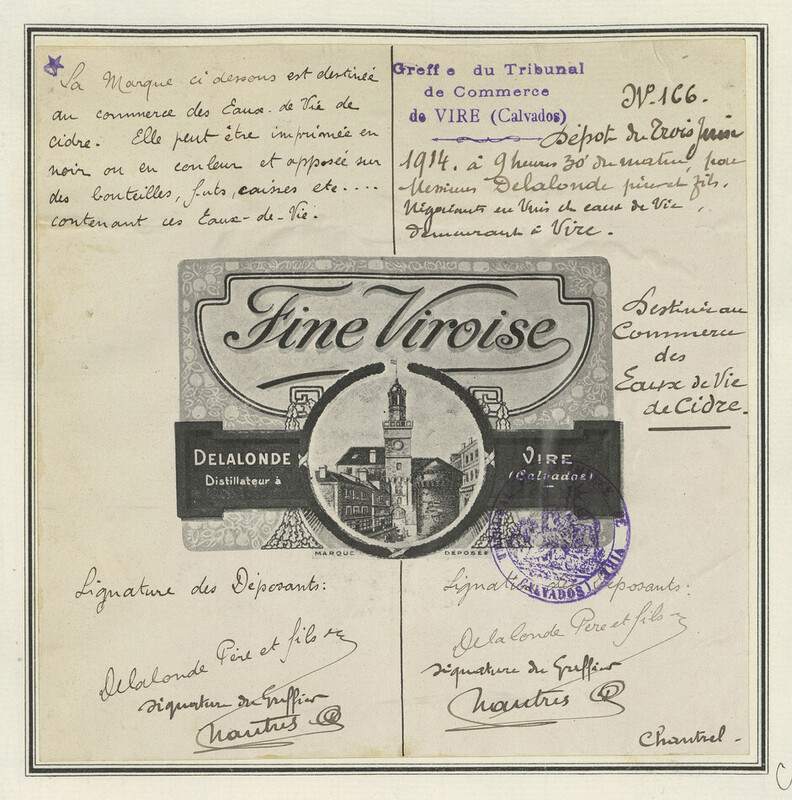 La Marque ci dessous est destinée
au commerce des Eaux-de-Vie de
cidre. Elle peut être imprimée en
noir ou en couleur et apposée sur
des bouteilles, futs, caisses etc....
contenant ces Eaux-de-Vie.
Greffe du Tribunal
de Commerce
de VIRE (Calvados)
No. 166.
Dépot du Trois Juin
1914. à 9 heures 30' du matin, pour
Messieurs Delalonde père et fils,
Négociants en Vins et eaux de Vie,
demeurant à Vire.
Destinée au
Commerce
des
Eaux de Vie
de Cidre.
Fine Viroise
DELALONDE
Distillateur à
VIRE
(Calvados)
MARQUE DÉPOSÉE
VIRE (CALVADOS)
Signature des Déposants:
Delalonde Père et fils
Signature du Greffier
Nautres
Signature des Déposants:
Delalonde Père et fils
Signature du Greffier
Nautres
Chantrel